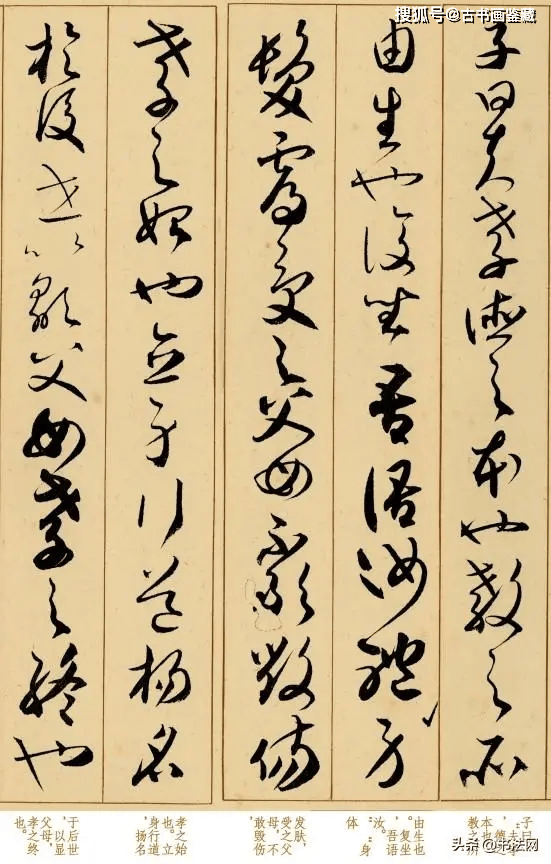 搜狐号@古书画鉴藏
子曰夫孝德之本也教之所
由生也復坐吾語汝體身
髮膚受之父母不敢毀傷
孝之始也立身行道揚名
於後世以顯父母孝之終也
子曰
：“夫
德之
本也
教之
由生也
。复坐
，吾语
汝。：身
体
发肤，
受之父
母，不
敢毁伤
孝之始
也。立
身行道
，扬名
于后世
，以显
父母，
孝之终
也。
头条@书法网